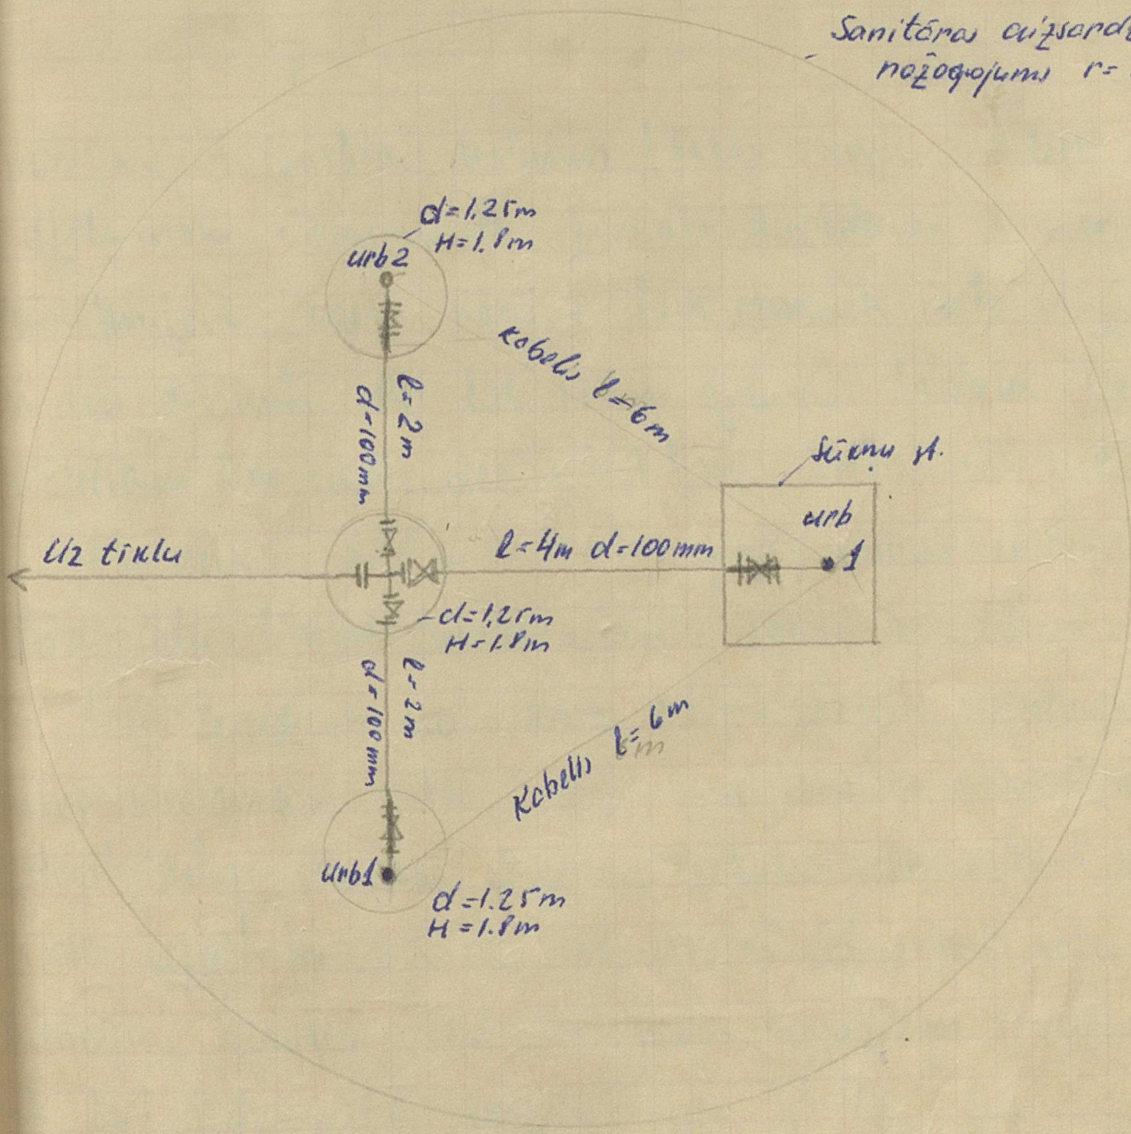 Sanitāras aizsard
nožogojums r=
d=1.25m
H=1.8m
urb2
kabelis l=6m
l=2m
d=100mm
Sūkņu st.
urb
1
Uz tīklu
l=4m d=100mm
d=1.25m
H=1.8m
l=2m
d=100mm
Kabelis l=6m
urb1
d=1.25m
H=1.8m